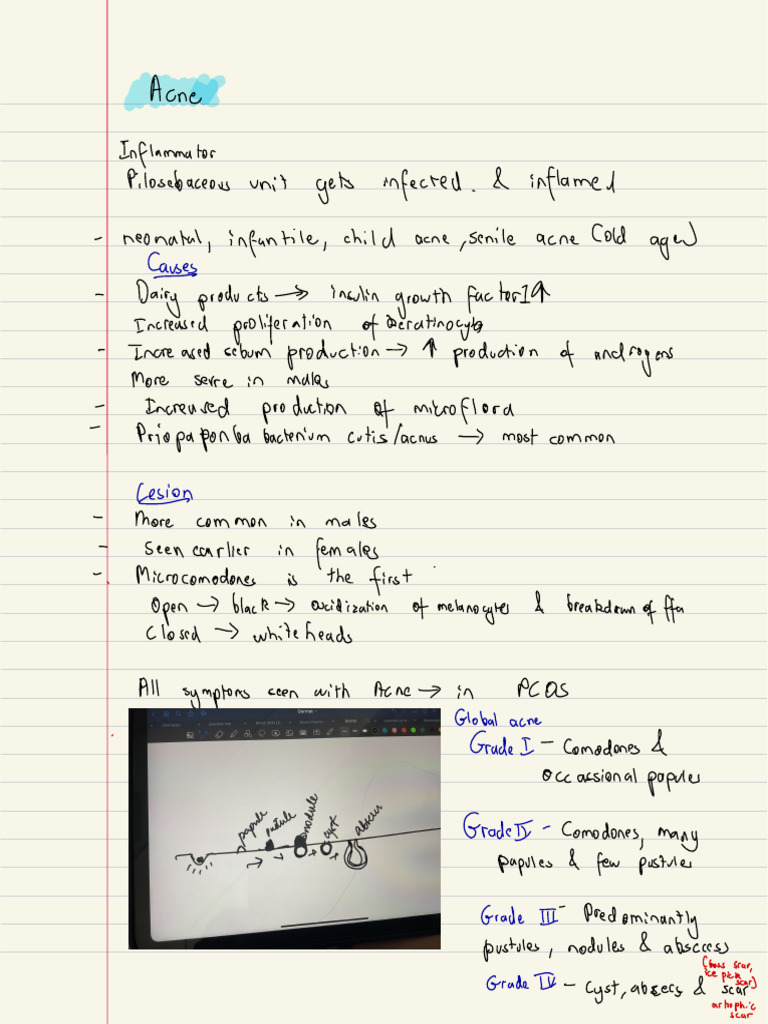 Acne
Inflammator
Pilosebaceous unit gets infected. & inflamed
- neonatal, infantile, child acne, senile acne (old age)
Causes
- Dairy products → insulin growth factor 1 ↑
Increased proliferation of keratinocyte
- Increased sebum production → ↑ production of androgens
More serre in males
- Increased production of microflora
- Priopaponba bacterium cutis/acnus → most common
Lesion
- More common in males
- Seen earlier in females
- Microcomodones is the first
Open → black → oxidization of melanocytes & breakdown of ffa
Closed → whiteheads
All symptoms seen with Acne → in PCOS
papule
pustule
nodule
cyst
abscess
Global acne
Grade I - Comodones &
occassional papules
Grade IV - Comodones, many
papules & few pustules
Grade III - Predominantly
pustules, nodules & abscess
Grade IV - Cyst, abscess & scar
ice pick
scar)
scar